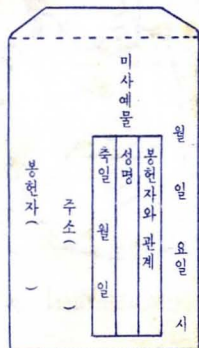 월 일 요일 시
미사예물
봉헌자와 관계
성명
축일 월 일
주소( )
봉헌자( )